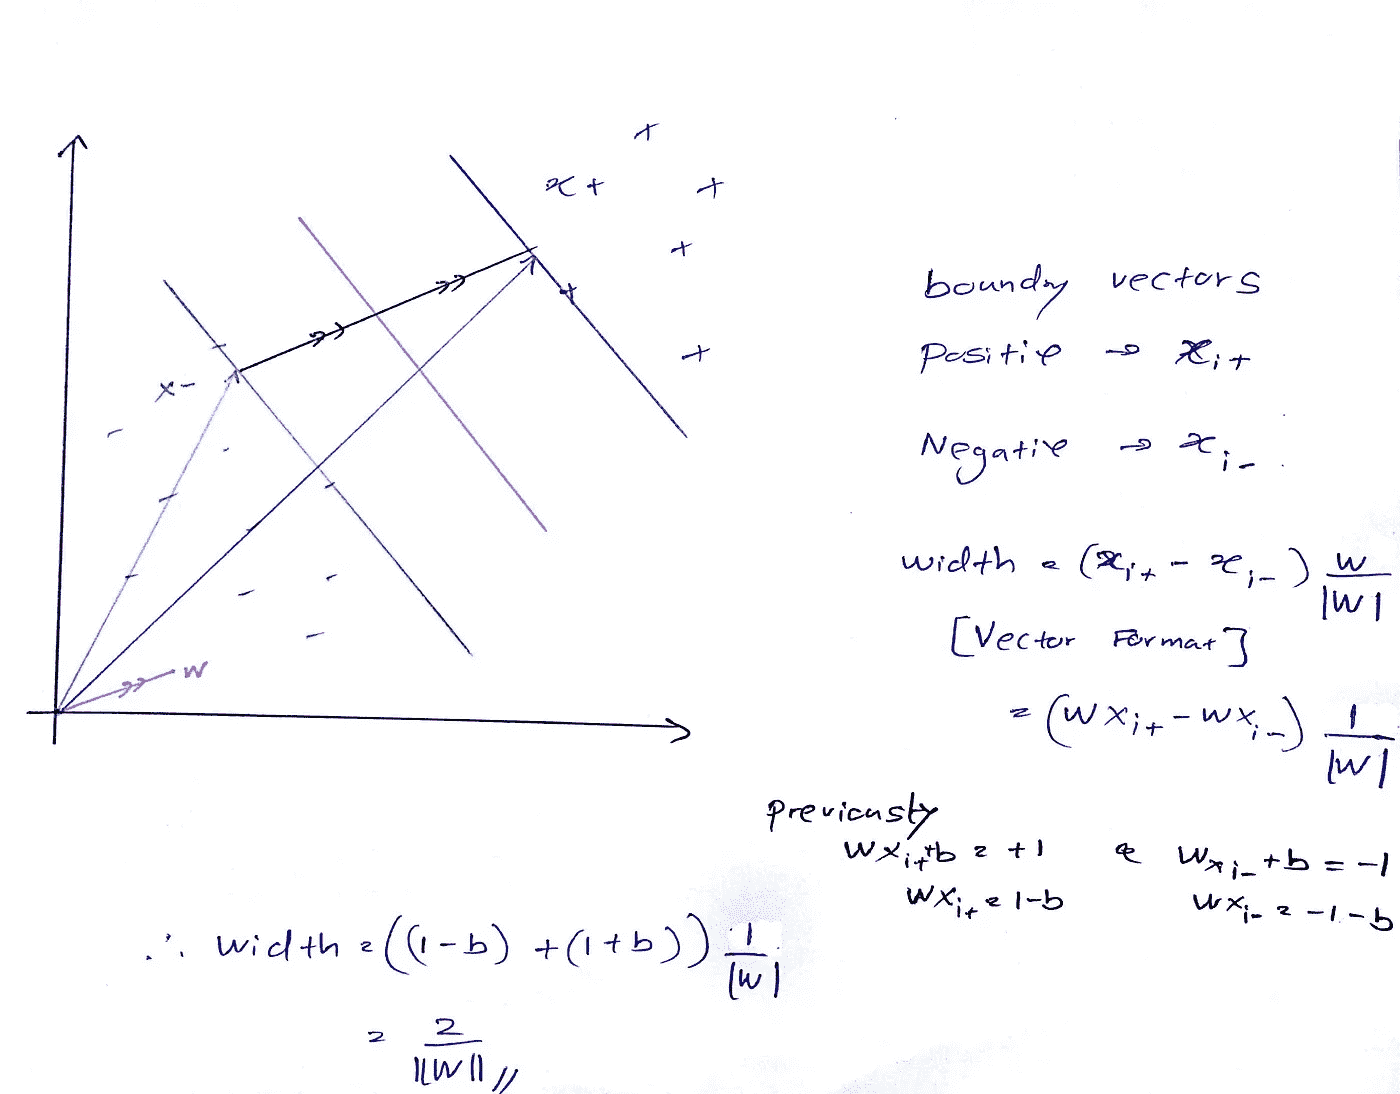 x+
x-
w
boundy vectors
Positie → x_{i+}
Negatie → x_{i-}
width = (x_{i+} - x_{i-}) w/|w|
[Vector Format]
= (wx_{i+} - wx_{i-}) 1/|w|
previously
wx_{i+}+b = +1 & wx_{i-}+b = -1
wx_{i+} = 1-b wx_{i-} = -1-b
∴ width = ((1-b) +(1+b)) 1/|w|
= 2/||w|| //